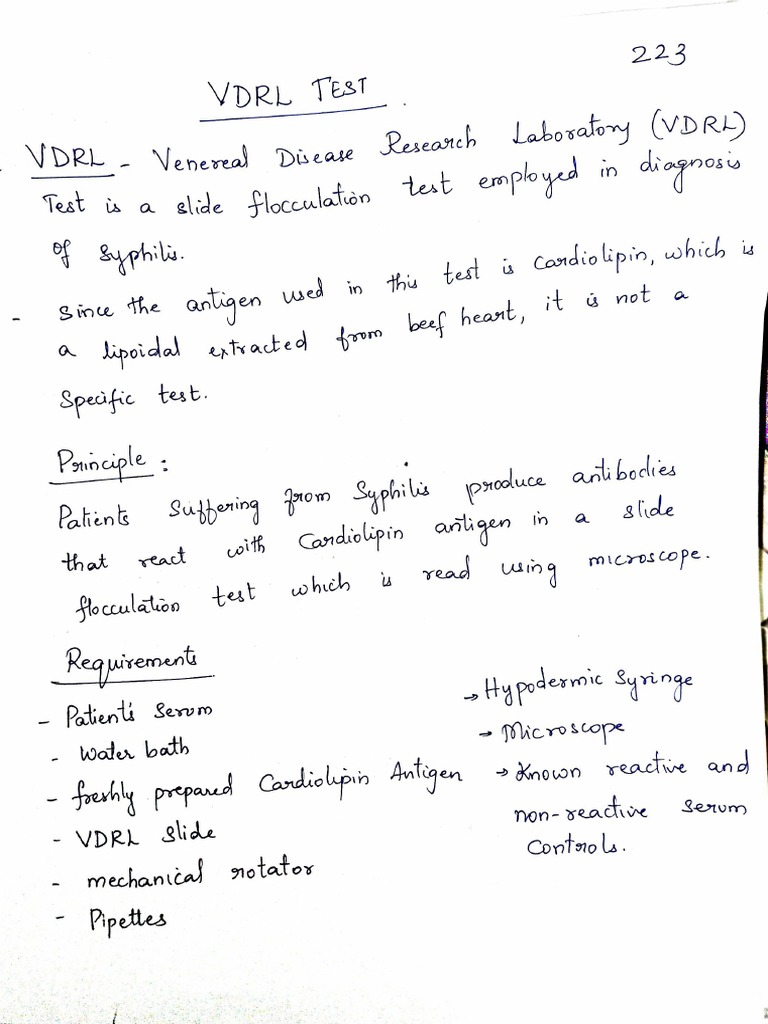 223
VDRL TEST.
VDRL - Venereal Disease Research Laboratory (VDRL)
Test is a slide flocculation test employed in diagnosis
of Syphilis.
- Since the antigen used in this test is cardiolipin, which is
a lipoidal extracted from beef heart, it is not a
Specific test.
Principle :
Patients Suffering from Syphilis produce antibodies
that react with Cardiolipin antigen in a slide
flocculation test which is read using microscope.
Requirements
- Patient's Serum
- Water bath
- freshly prepared Cardiolipin Antigen
- VDRL Slide
- mechanical rotator
- Pipettes
→ Hypodermic Syringe
→ Microscope
→ Known reactive and
non-reactive Serum
Controls.